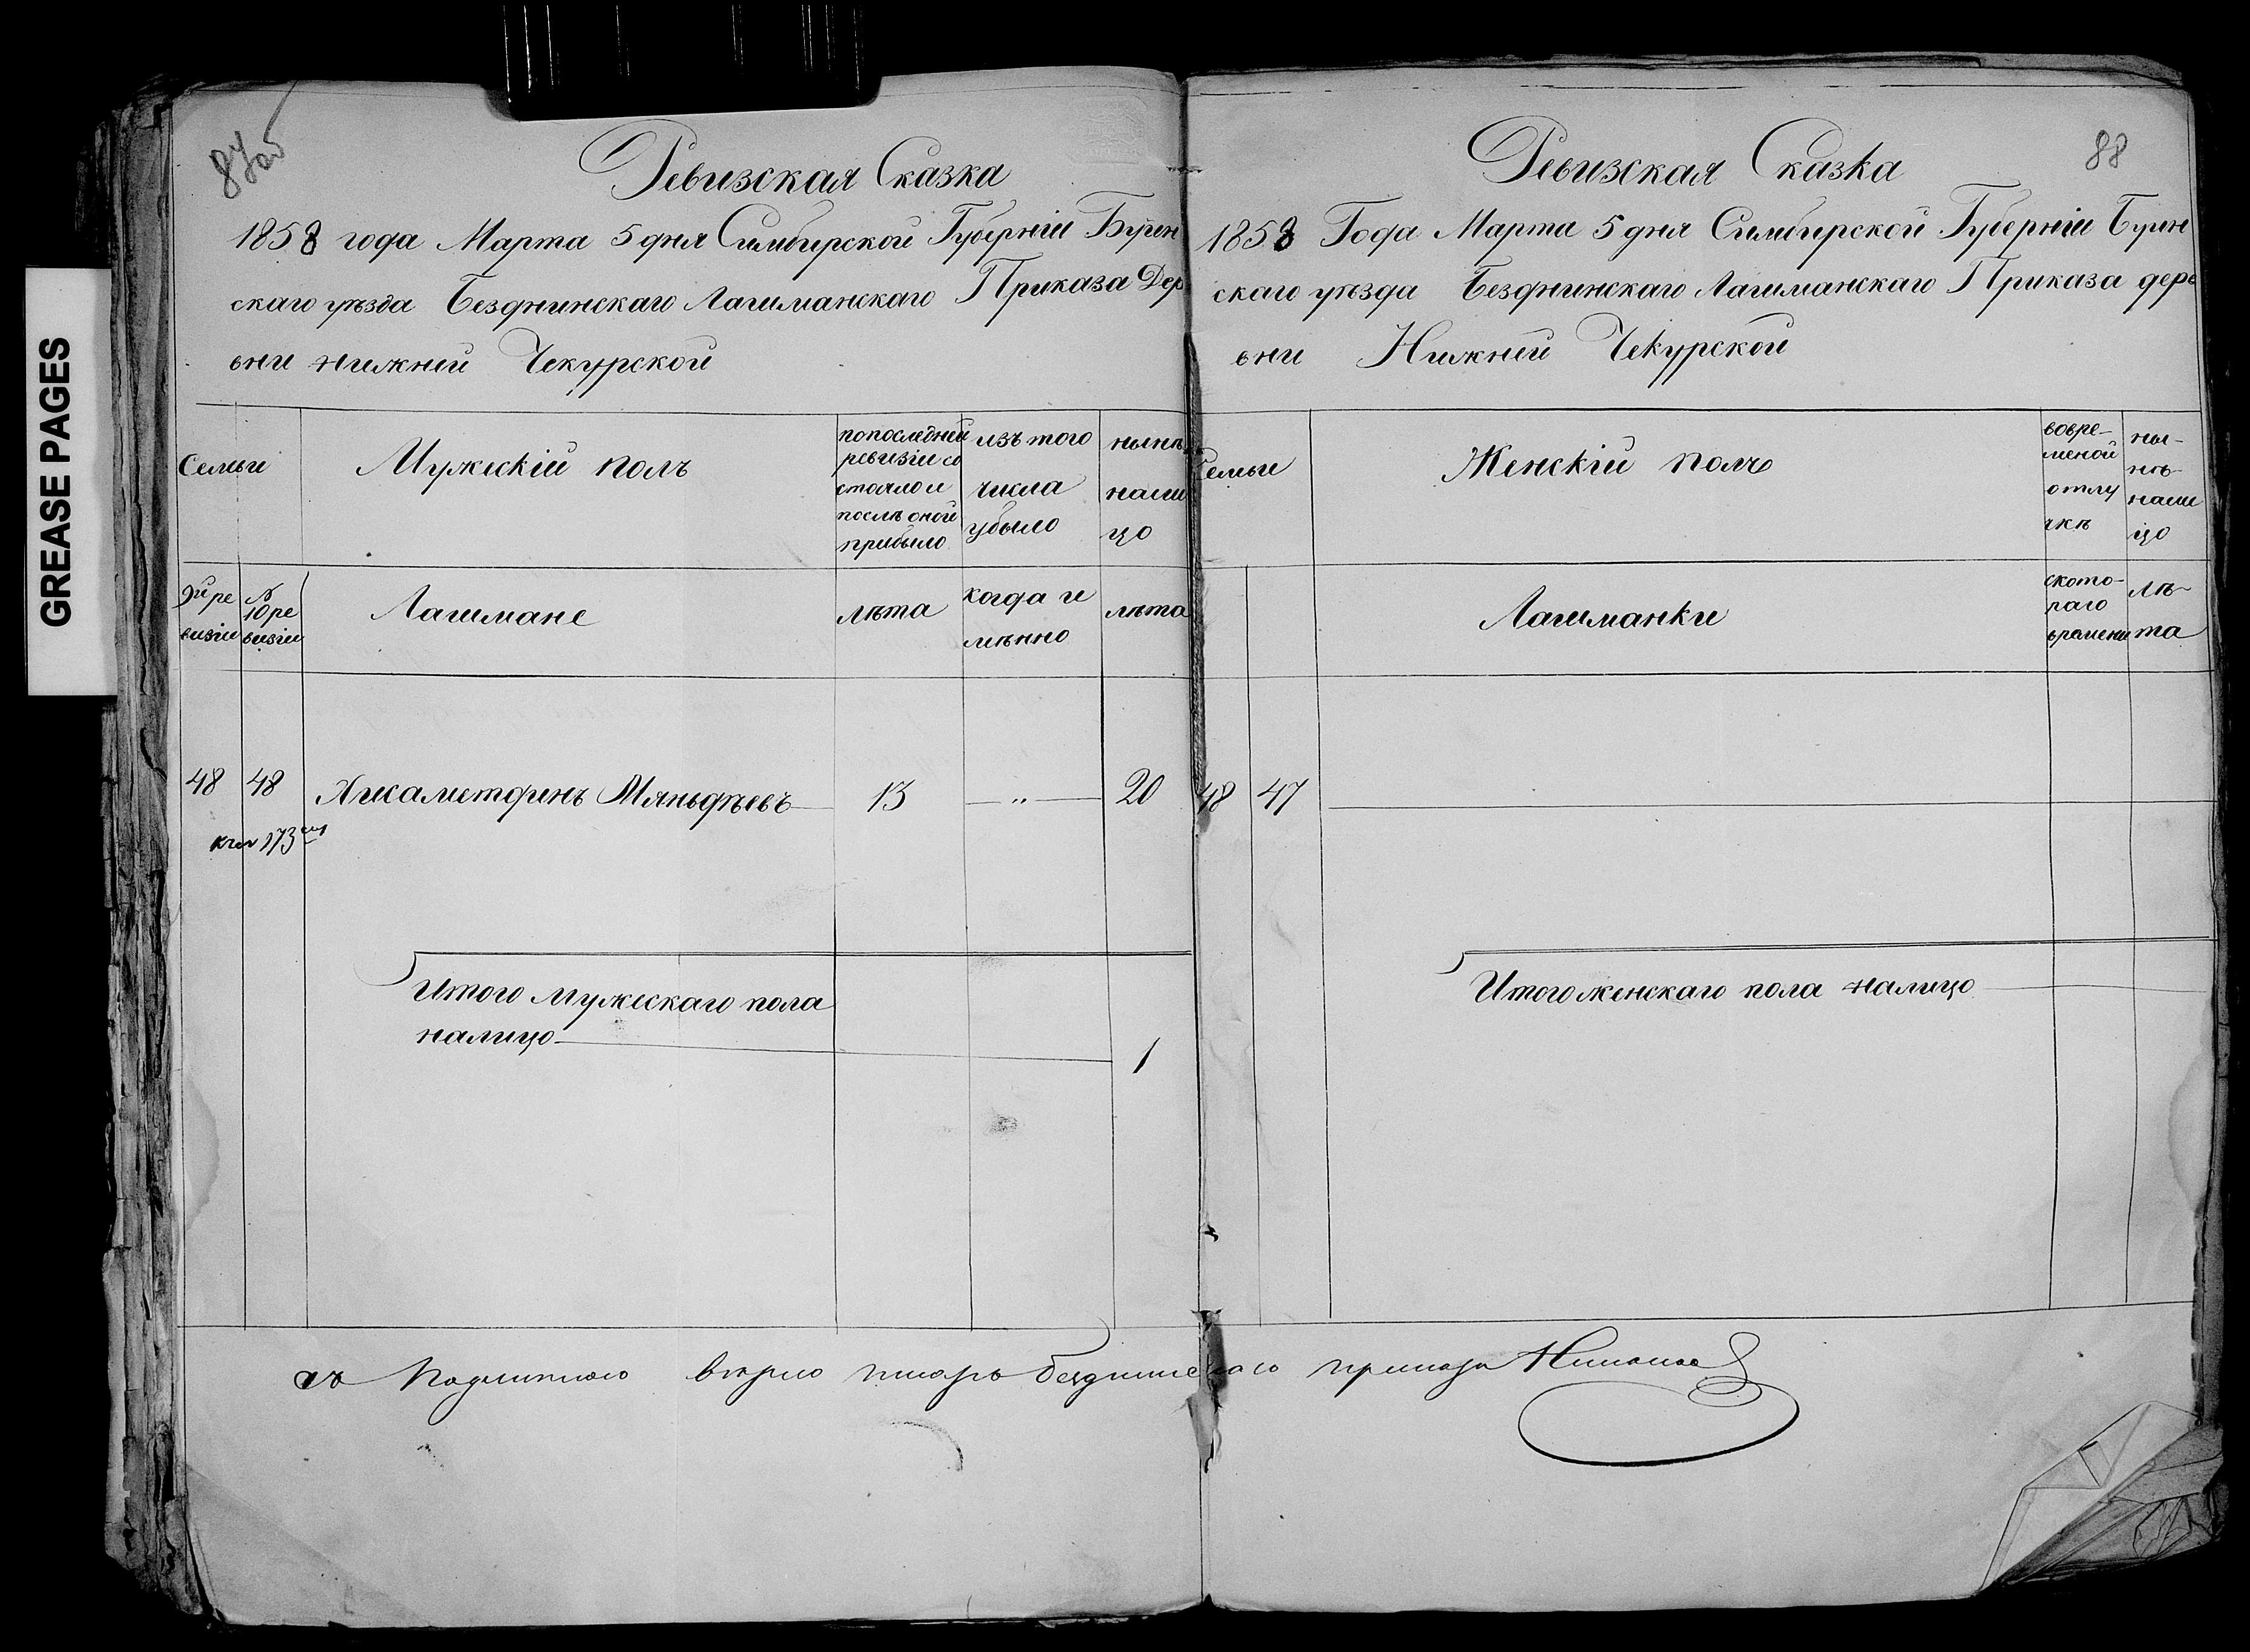 GREASE PAGES
87об
Ревизская Сказка
1858 года Марта 5 дня Симбирской Губерніи Буин
скаго уѣзда Безднинскаго Лашманскаго Приказа Дер
вни нижней Чекурской
Семьи
Мужескій полъ
попоследней
ревизіи со
стояло и
послѣ оной
прибыло
изъ того
числа
убыло
нынѣ
нали
цо
9й ре
визіи
№
10 ре
визіи
Лашмане
лѣта
когда и
мѣнно
лѣта
48 48 Хисаметдинъ Мяньдѣевъ 13 — " — 20
173
Итого мужескаго пола
налицо 1
88
Ревизская Сказка
1858 Года Марта 5 дня Симбирской Губерніи Буин
скаго уѣзда Безднинскаго Лашманскаго Приказа дере
вни Нижней Чекурской
Семьи
Женскій полъ
вовре-
меной
отлу
чкѣ
ны-
нѣ-
нали
цо
Лашманки
ското-
раго
времени
лѣ-
та
48 47
Итого женскаго пола налицо
съ Подлиннымъ вѣрно писарь Безднинскаго приказа